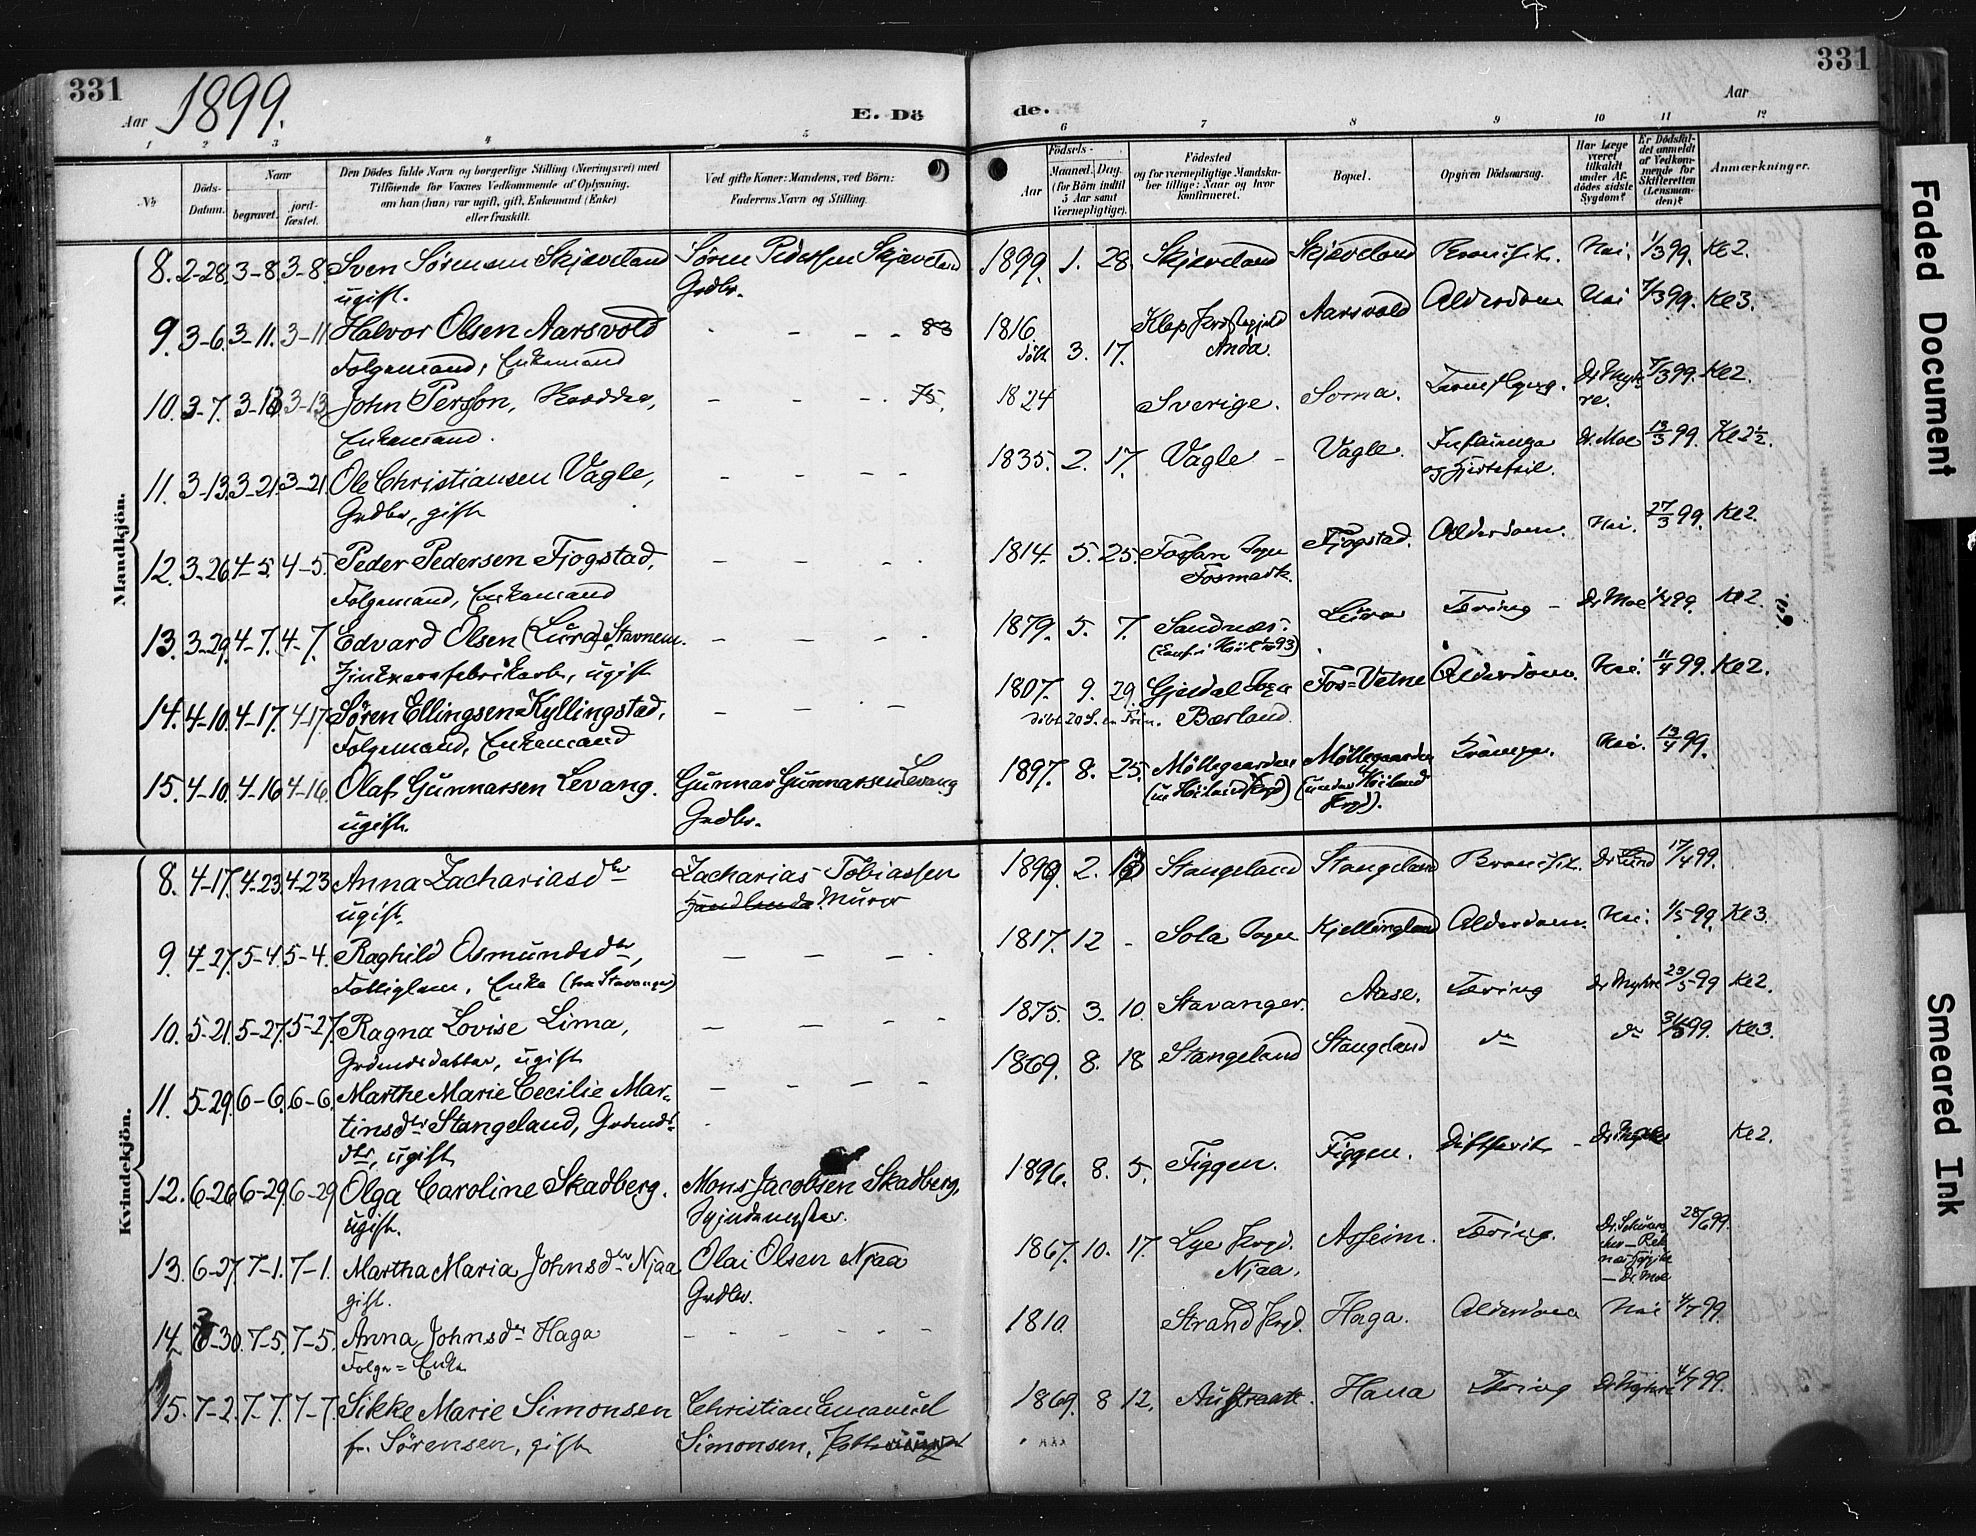 331
331
Aar 1899.
E. Dö
de.
Aar
1 2 3 4 5 6 7 8 9 10 11 12
№
Döds-Datum.
Naar
begravet.
jord-fæstet.
Den Dödes fulde Navn og borgerlige Stilling (Næringsvei) med
Tilföiende for Voxnes Vedkommende af Oplysning,
om han (hun) var ugift, gift, Enkemand (Enke)
eller fraskilt.
Ved gifte Koner: Mandens, ved Börn:
Faderens Navn og Stilling.
Födsels-
Aar
Maaned. Dag.
(for Börn indtil
5 Aar samt
Værnepligtige).
Födested
og for værnepligtige Mandska-
ber tillige: Naar og hvor
konfirmeret.
Bopæl.
Opgiven Dödsaarsag.
Har Læge
været
tilkaldt
under Af-
dödes sidste
Sygdom?
Er Dödsfal-
det anmeldt
af Vedkom-
mende for
Skifteretten
(Lensman-
den)?
Anmærkninger.
Mandkjön.
8. 2-28. 3-8. 3-8. Sven Sörensen Skjæveland Sören Pedersen Skjæveland 1899. 1. 28. Skjæveland Skjæveland Bronchit. Nei. 1/3 99. Kl 2.
ugift. Grdbr.
9. 3-6. 3-11. 3-11 Halvor Olsen Aarsvold - - - 83 1816 Klep Prestegjeld Aarsvold Alderdom Nei 7/3 99. Kl 3.
Folgemand, Enkemand döbt 3. 17. Anda.
10. 3-7. 3-13 3-13 John Person, - - - 75. 1824 Sverige. Soma. Dr. Myh-re. 7/3 99. Kl 2.
Enkemand.
11. 3-13. 3-21. 3-21. Ole Christiansen Vagle, - - - - 1835. 2. 17. Vagle - Vagle. Influenza Dr. Moe 13/3 99. Kl 2½.
Grdbr, gift og Hjertefeil.
12. 3-26. 4-5. 4-5. Peder Pedersen Fjogstad, - - - . 1814. 5. 25. Fossan Sogn Fjogstad. Alderdom. Nei. 27/3 99. Kl 2.
Folgemand, Enkemand Fosmark.
13. 3-29. 4-7. 4-7. Edvard Olsen (Lura) Stavnem. - - - - 1879. 5. 7. Sandnæs. Lura Tæring - Dr Moe 1/4 99. Kl 2.
ugift
14. 4-10. 4-17. 4-17. Sören Ellingsen Kyllingstad, - - - - 1807. 9. 29. Gjesdal Sogn Fos=Vatne Alderdom. Nei. 11/4 99. Kl 2.
Folgemand, Enkemand Bærland.
15. 4-10. 4-16 4-16. Olaf Gunnarsen Levang. Gunnar Gunnarsen Levang 1897. 8. 25. Möllegaarden Möllegaarden Krampe. Nei. 13/4 99.
ugift. Grdbr. (u. Höiland Prgd) (under Höiland Prgd).
Kvindekjön.
8. 4-17. 4-23 4-23 Anna Zachariasdtr Zacharias Tobiassen 1899. 2. 13 Stangeland Stangeland Bronchit. Dr Lund 17/4 99.
ugift. Murer
9. 4-27. 5-4. 5-4. Raghild Osmundsdtr, - - - . 1817. 12 - Sola Sogn Kjellingland Alderdom. Nei. 1/5 99. Kl 3.
Fattiglem, Enke (fra Stavanger)
10. 5-21. 5-27. 5-27. Ragna Lovise Lima, - - - - 1875. 3. 10. Stavanger. Aase. Tæring Dr Myhre 23/5 99 Kl 2.
Grdmdsdatter, ugift
11. 5-29. 6-6. 6-6. Marthe Marie Cecilie Mar- - - - - 1869. 8. 18 Stangeland Stangeland do do 31/5 99. Kl 3.
tinsdtr Stangeland, Grdmds-
dtr, ugift
12. 6-26 6-29. 6-29 Olga Caroline Skadberg. Mons Jacobsen Skadberg, 1896. 8. 5. Figgen. Figgen. Diftherit - Dr Myhre Kl 2.
ugift.
13. 6-27 7-1. 7-1. Martha Maria Johnsdtr Njaa Olai Olsen Njaa 1867. 10. 17. Lye Prgd. Asheim. Tæring. 28/6 99.
gift. Grdbr. Njaa, - Dr Moe
14. 6-30. 7-5. 7-5. Anna Johnsdtr Haga - - - - - - 1810. Strand Prgd. Haga. Alderdom Nei 4/7 99.
Folge=Enke
15. 7-2. 7-7. 7-7. Sikke Marie Simonsen Christian Emanuel 1869. 8 12. Austraat. Hana Tæring Dr Myhre 4/7 99.
f. Sörensen, gift Simonsen,
Faded Document
Smeared Ink